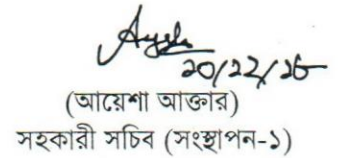 ২০/১১/২৫
(আয়েশা আক্তার)
সহকারী সচিব (সংস্থাপন-১)